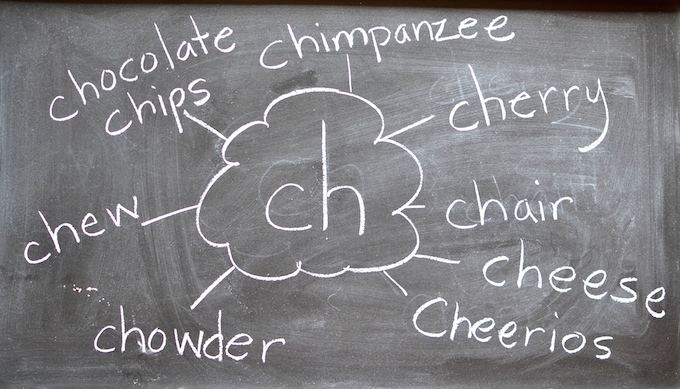 chocolate
chips
chimpanzee
cherry
ch
chair
chew
cheese
Cheerios
chowder